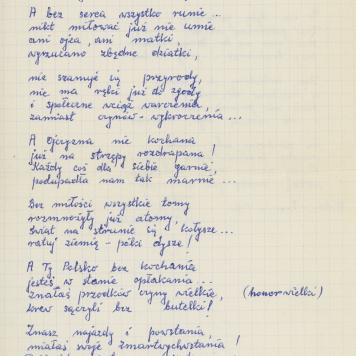 A bez serca wszystko runie...
nikt miłować już nie umie
ani ojca, ani matki,
wyrzucano zbędne dziatki,
nie szanuje się przyrody,
nie ma ręki już do zgody
i społeczne wciąż warczenia,
zamiast czynów - wykroczenia...
A Ojczyzna nie kochana
już na strzępy rozdrapana!
Każdy coś dla siebie garnie,
podupadła nam tak marnie...
Bez miłości wszystkie tomy
rozmnożyły już atomy,
świat na strunie się kołysze...
ratuj ziemię - póki dysze!
A Ty Polsko bez kochania
jesteś w stanie opłakania...
Znałaś przodków czyny wielkie, (honor wielki)
krew sączyli bez butelki!
Znasz najazdy i powstania,
miałaś swoje zmartwychwstania!